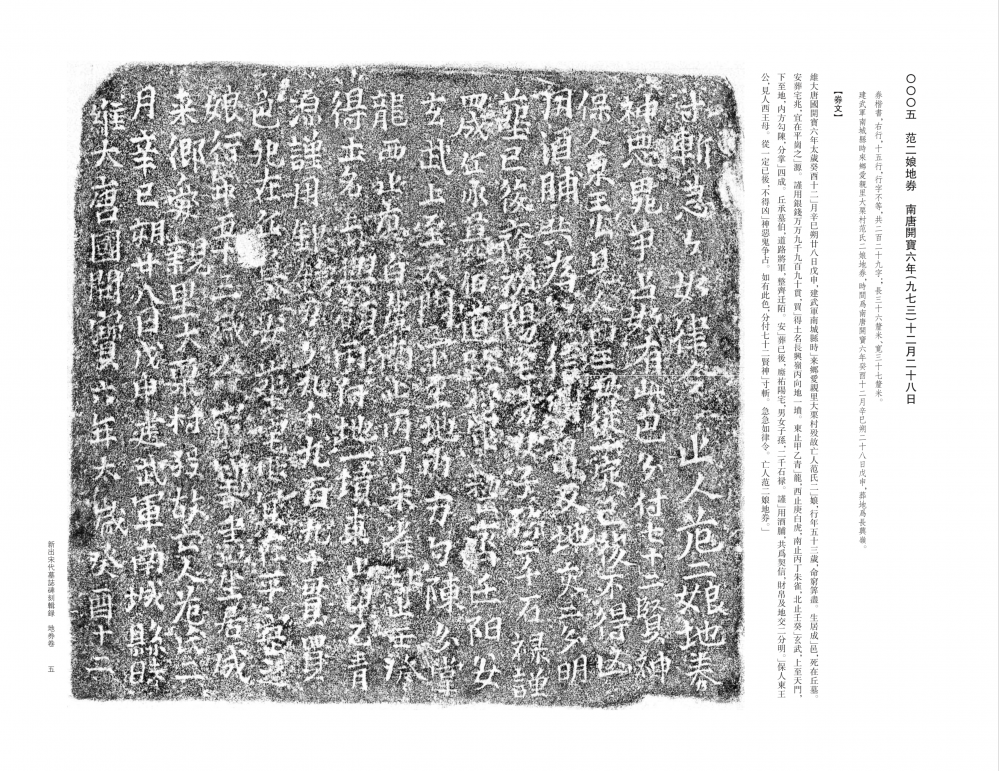 〇〇〇五　范二娘地券　南唐開寶六年(九七三)十二月二十八日
券楷書，右行，十五行，行字不等，共二百二十九字，長三十六釐米，寬三十七釐米。
建武軍南城縣時來鄉愛親里大栗村范氏二娘地券，時間爲南唐開寶六年癸酉十二月辛巳朔二十八日戊申，葬地爲長興嶺。
【券文】
維大唐國開寶六年太歲癸酉十二」月辛巳朔廿八日戊申，建武軍南城縣時」來鄉愛親里大栗村歿故亡人范氏二」娘，行年五十三歲，命窮筭盡。生居成」邑，死在丘墓。
安葬宅兆，宜在平崗之」源。謹用銀錢万万九千九百九十貫，買」得土名長興嶺丙向地一墳。東止甲乙青」龍，西止庚白虎，南止丙丁朱雀，北止壬癸」玄武，上至天門，
下至地，內方勾陳，分掌」四成，丘承墓伯，道路將軍，整齊迁陌。安」葬已後，應祐陽宅，男女子孫，二千石禄。謹」用酒脯，共爲契信，財帛及地交二分明。」保人東王
公，見人西王母。從一定已後，不得凶」神惡鬼争占。如有此色，分付七十二賢神」寸斬。急急如律令。亡人范二娘地券。」
維大唐國開寶六年太歲癸酉十二
月辛巳朔廿八日戊申建武軍南城縣時
来鄉愛親里大栗村歿故亡人范氏二
娘行年五十三歲命窮筭盡生居成
邑死在丘墓安葬宅兆宜在平崗之
源謹用銀錢万万九千九百九十貫買
得土名長興嶺丙向地一墳東止甲乙青
龍西止庚白虎南止丙丁朱雀北止壬癸
玄武上至天門下至地內方勾陳分掌
四成丘承墓伯道路將軍整齊迁陌安
葬已後應祐陽宅男女子孫二千石禄謹
用酒脯共爲契信財帛及地交二分明
保人東王公見人西王母從一定已後不得凶
神惡鬼争占如有此色分付七十二賢神
寸斬急急如律令亡人范二娘地券
新出宋代墓誌碑刻輯錄　地券卷　五